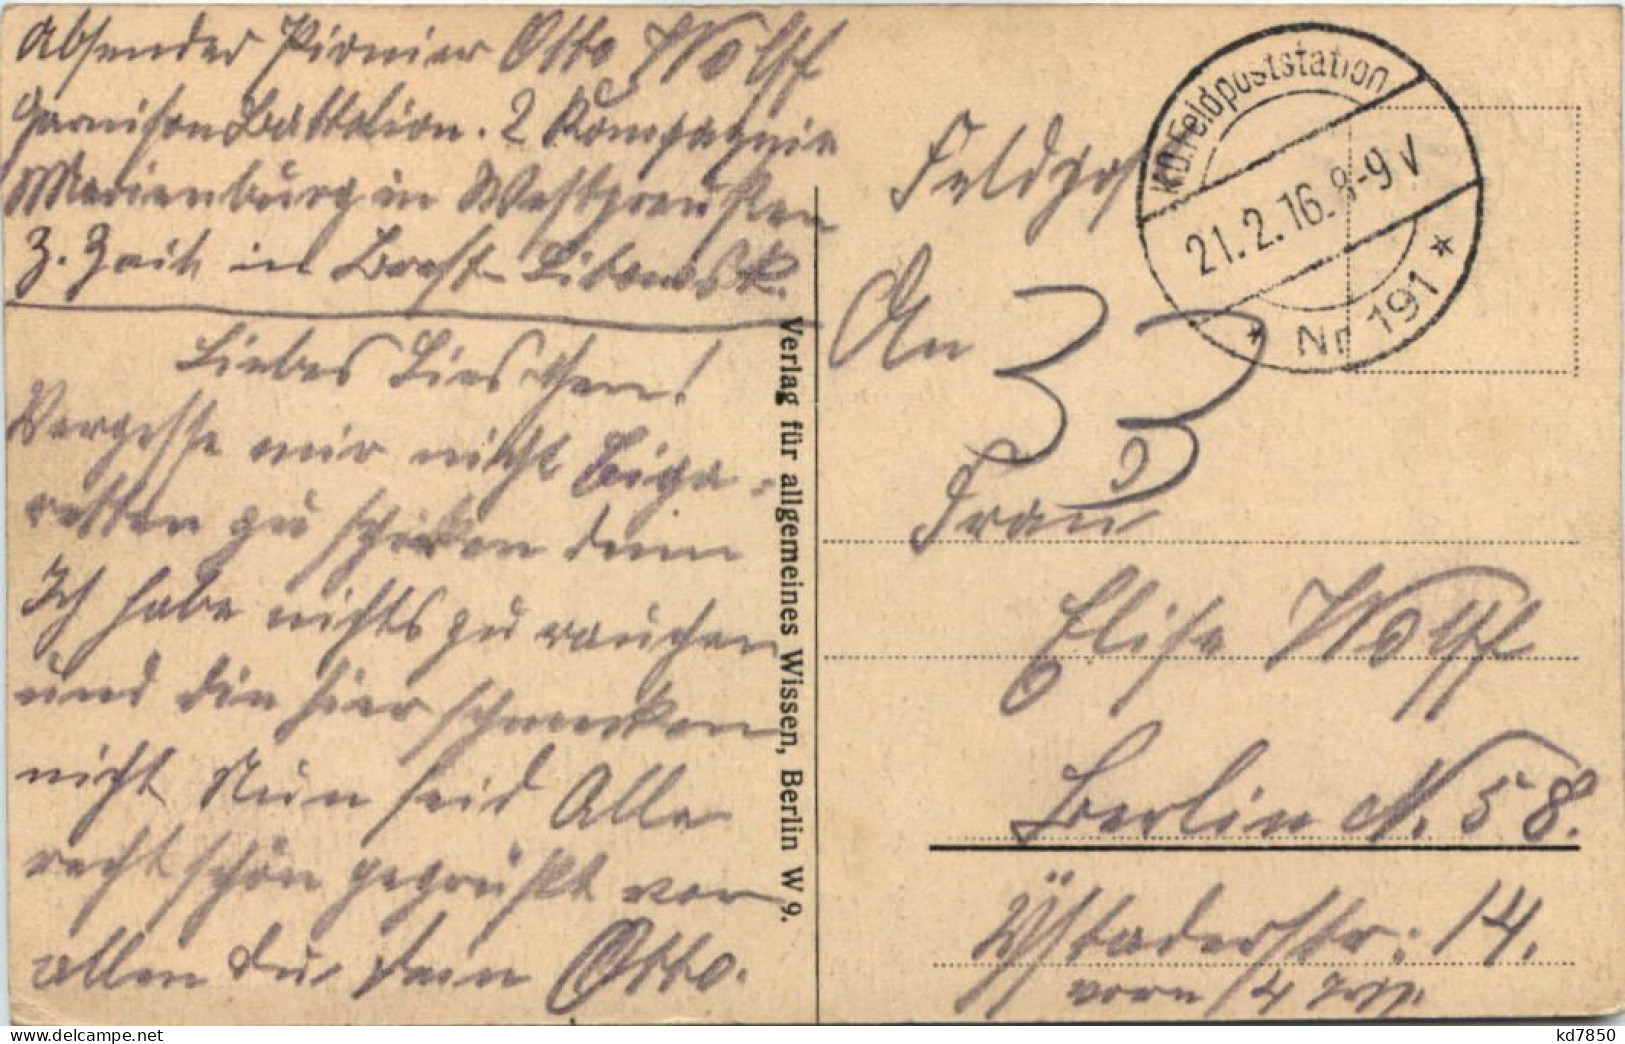 Absender Pionier Otto Wolff
Garnison Battalion. 2 Kompagnie
Marienburg in Westpreußen
Z. Zeit in Brest-Litowsk.
Liebes Lieschen!
Vergesse mir nicht Ziga-
retten zu schicken denn
Ich habe nichts zu rauchen
und die hier schmecken
nicht Nun seid Alle
recht schön gegrüßt vor
allen du, dein Otto.
Verlag für allgemeines Wissen, Berlin W 9.
K.D. Feldpoststation
21.2.16. 8-9 V
* Nr 191 *
Feldpost
An
33
Frau
Elise Wolff
Berlin N. 58.
Ystaderstr: 14.
vorn 4
kd7850